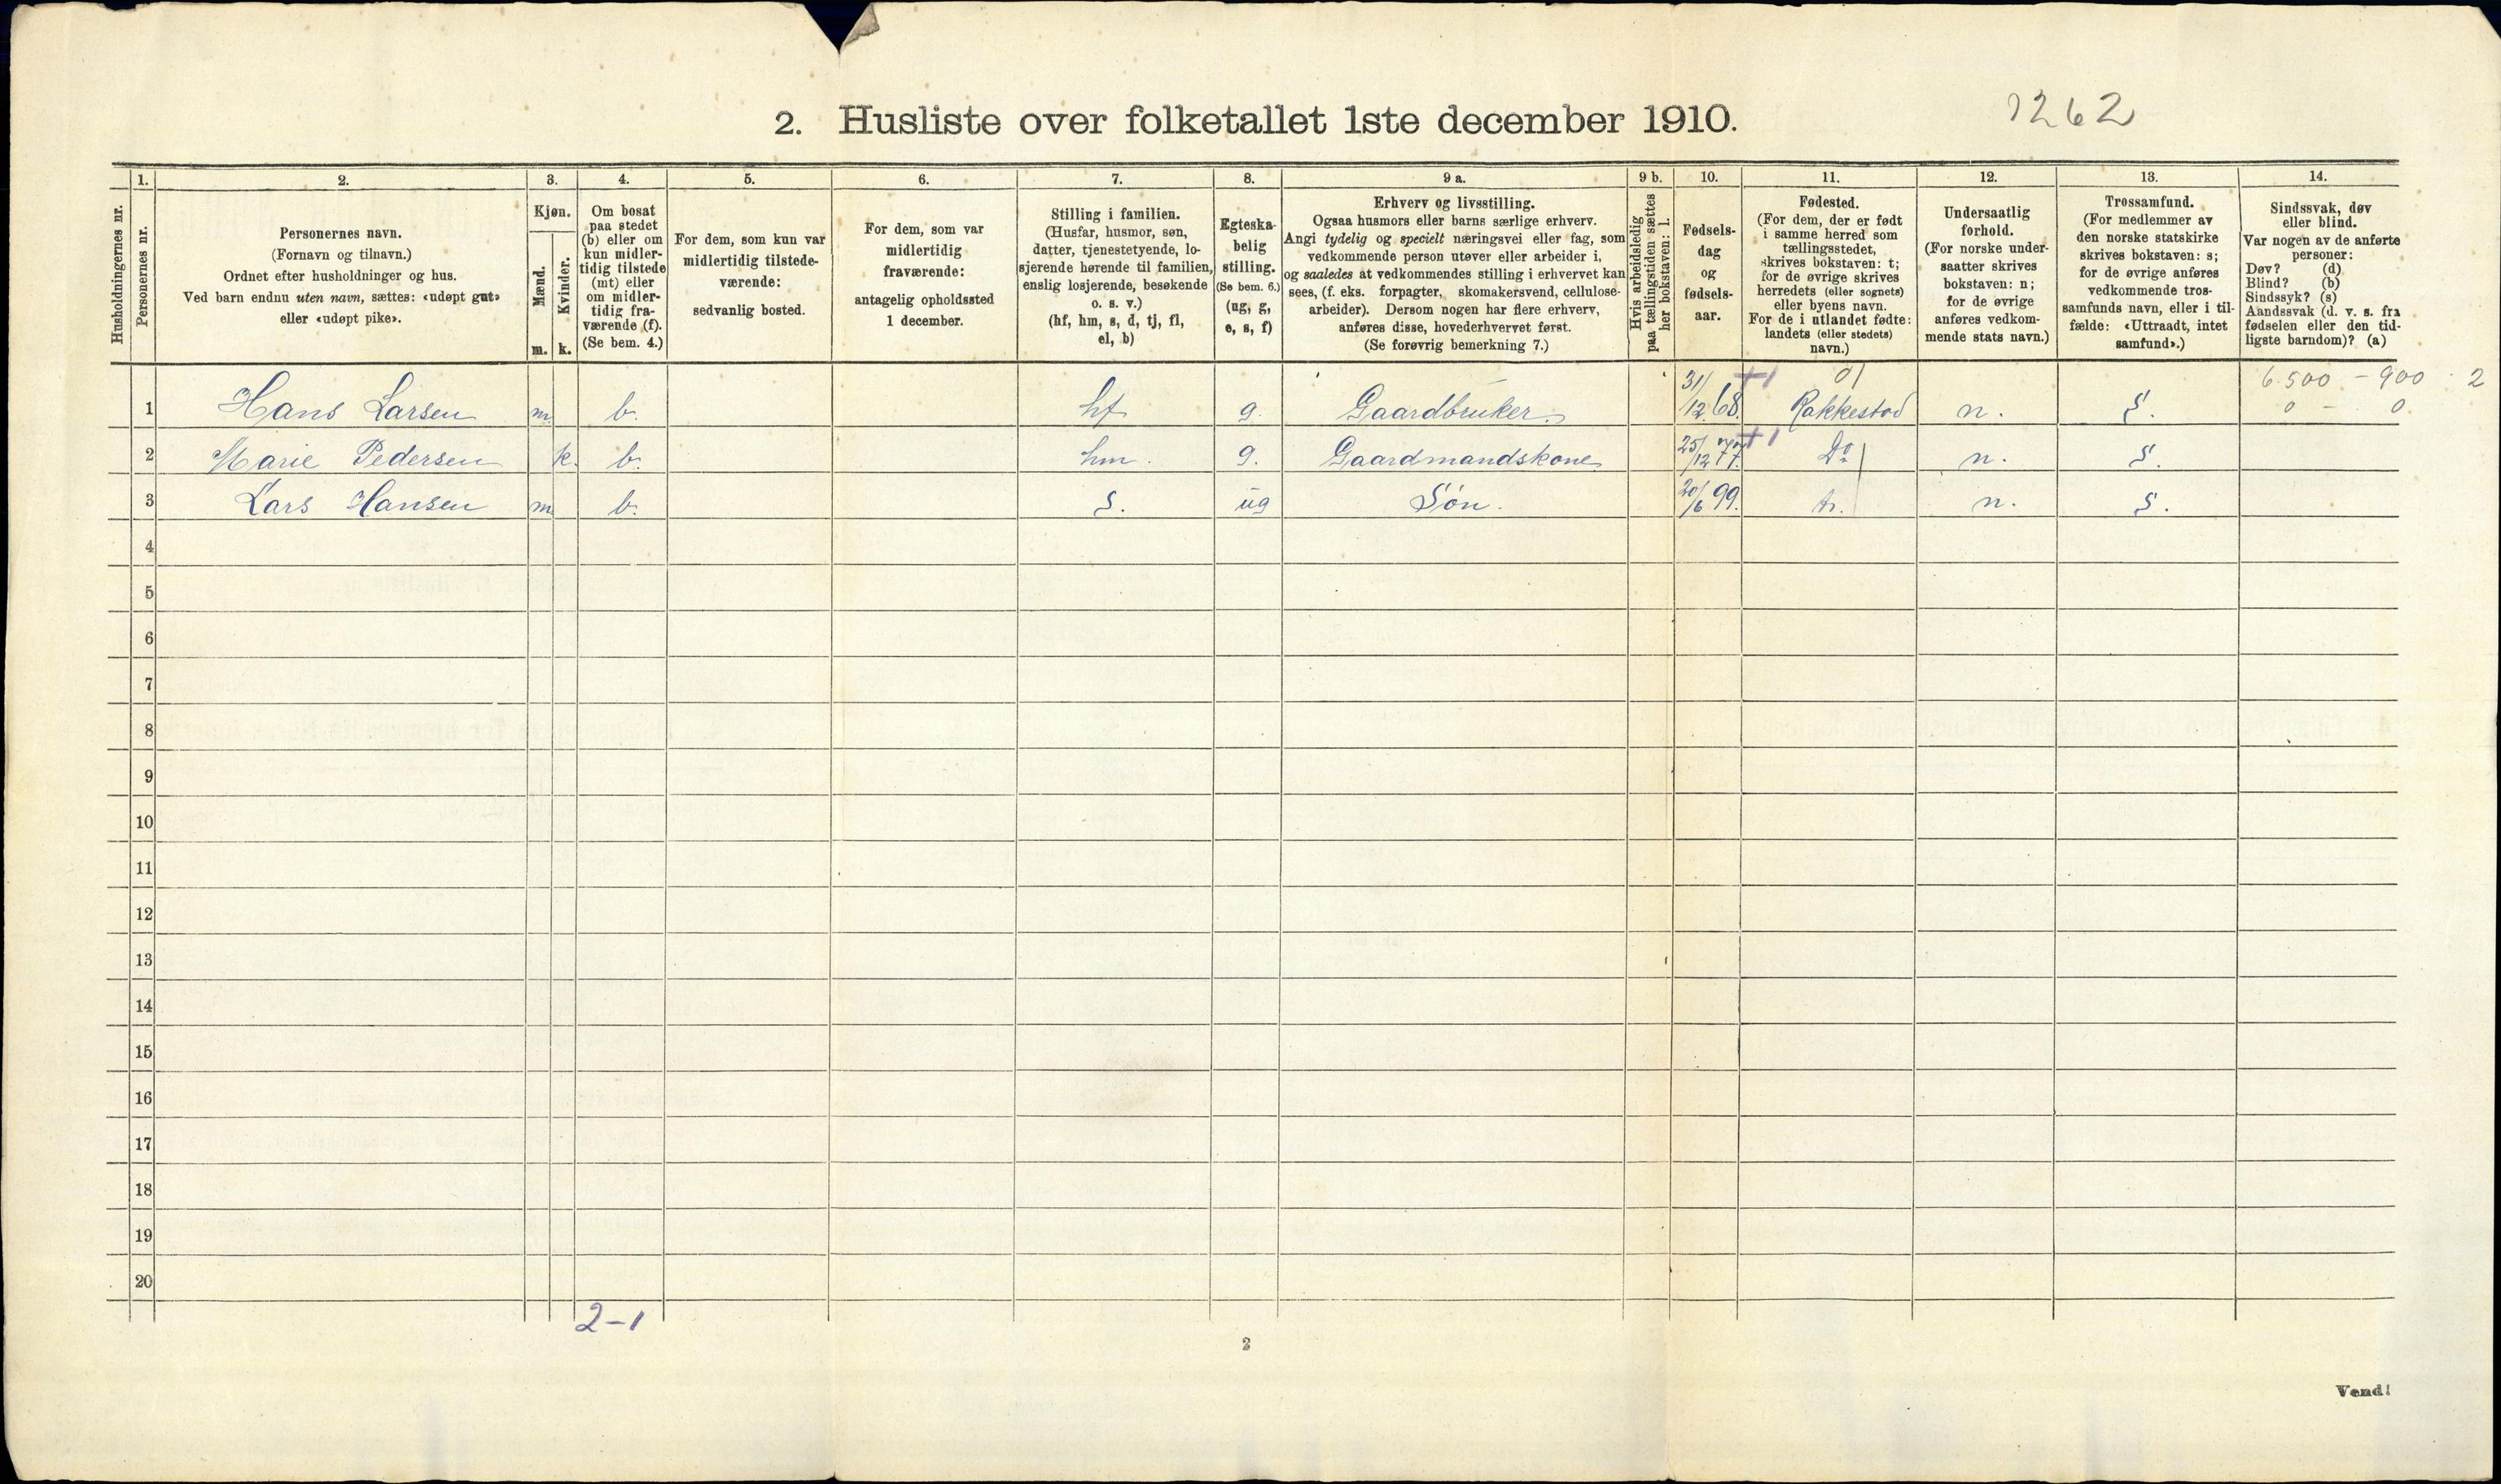 2. Husliste over folketallet 1ste december 1910.
1262
Husholdningernes nr.
1.
Personernes nr.
2.
Personernes navn.
(Fornavn og tilnavn.)
Ordnet efter husholdninger og hus.
Ved barn endnu uten navn, sættes: «udøpt gut»
eller «udøpt pike».
3.
Kjøn.
Mænd.
Kvinder.
m.
k.
4.
Om bosat
paa stedet
(b) eller om
kun midler-
tidig tilstede
(mt) eller
om midler-
tidig fra-
værende (f).
(Se bem. 4.)
5.
For dem, som kun var
midlertidig tilstede-
værende:
sedvanlig bosted.
6.
For dem, som var
midlertidig
fraværende:
antagelig opholdssted
1 december.
7.
Stilling i familien.
(Husfar, husmor, søn,
datter, tjenestetyende, lo-
sjerende hørende til familien,
enslig losjerende, besøkende
o. s. v.)
(hf, hm, s, d, tj, fl,
el, b)
8.
Egteska-
belig
stilling.
(Se bem. 6.)
(ug, g,
e, s, f)
9 a.
Erhverv og livsstilling.
Ogsaa husmors eller barns særlige erhverv.
Angi tydelig og specielt næringsvei eller fag, som
vedkommende person utøver eller arbeider i,
og saaledes at vedkommendes stilling i erhvervet kan
sees, (f. eks. forpagter, skomakersvend, cellulose-
arbeider). Dersom nogen har flere erhverv,
anføres disse, hovederhvervet først.
(Se forøvrig bemerkning 7.)
9 b.
Hvis arbeidsledig
paa tællingstiden sættes
her bokstaven: l.
10.
Fødsels-
dag
og
fødsels-
aar.
11.
Fødested.
(For dem, der er født
i samme herred som
tællingsstedet,
skrives bokstaven: t;
for de øvrige skrives
herredets (eller sognets)
eller byens navn.
For de i utlandet fødte:
landets (eller stedets)
navn.)
12.
Undersaatlig
forhold.
(For norske under-
saatter skrives
bokstaven: n;
for de øvrige
anføres vedkom-
mende stats navn.)
13.
Trossamfund.
(For medlemmer av
den norske statskirke
skrives bokstaven: s;
for de øvrige anføres
vedkommende tros-
samfunds navn, eller i til-
fælde: «Uttraadt, intet
samfund».)
14.
Sindssvak, døv
eller blind.
Var nogen av de anførte
personer:
Døv? (d)
Blind? (b)
Sindssyk? (s)
Aandssvak (d. v. s. fra
fødselen eller den tid-
ligste barndom)? (a)
01
6.500 - 900 . 2
0 - 0
1 Hans Larsen m. b. hf g. Gaardbruker. 31/12 68. Rakkestad n. S.
2 Marie Pedersen k. b. hm. g. Gaardmandskone 25/12 77. Do n. S.
3 Lars Hansen m b. S. ug Søn. 20/6 99. t. n. S.
4
5
6
7
8
9
10
11
12
13
14
15
16
17
18
19
20
2-1
2
Vend!